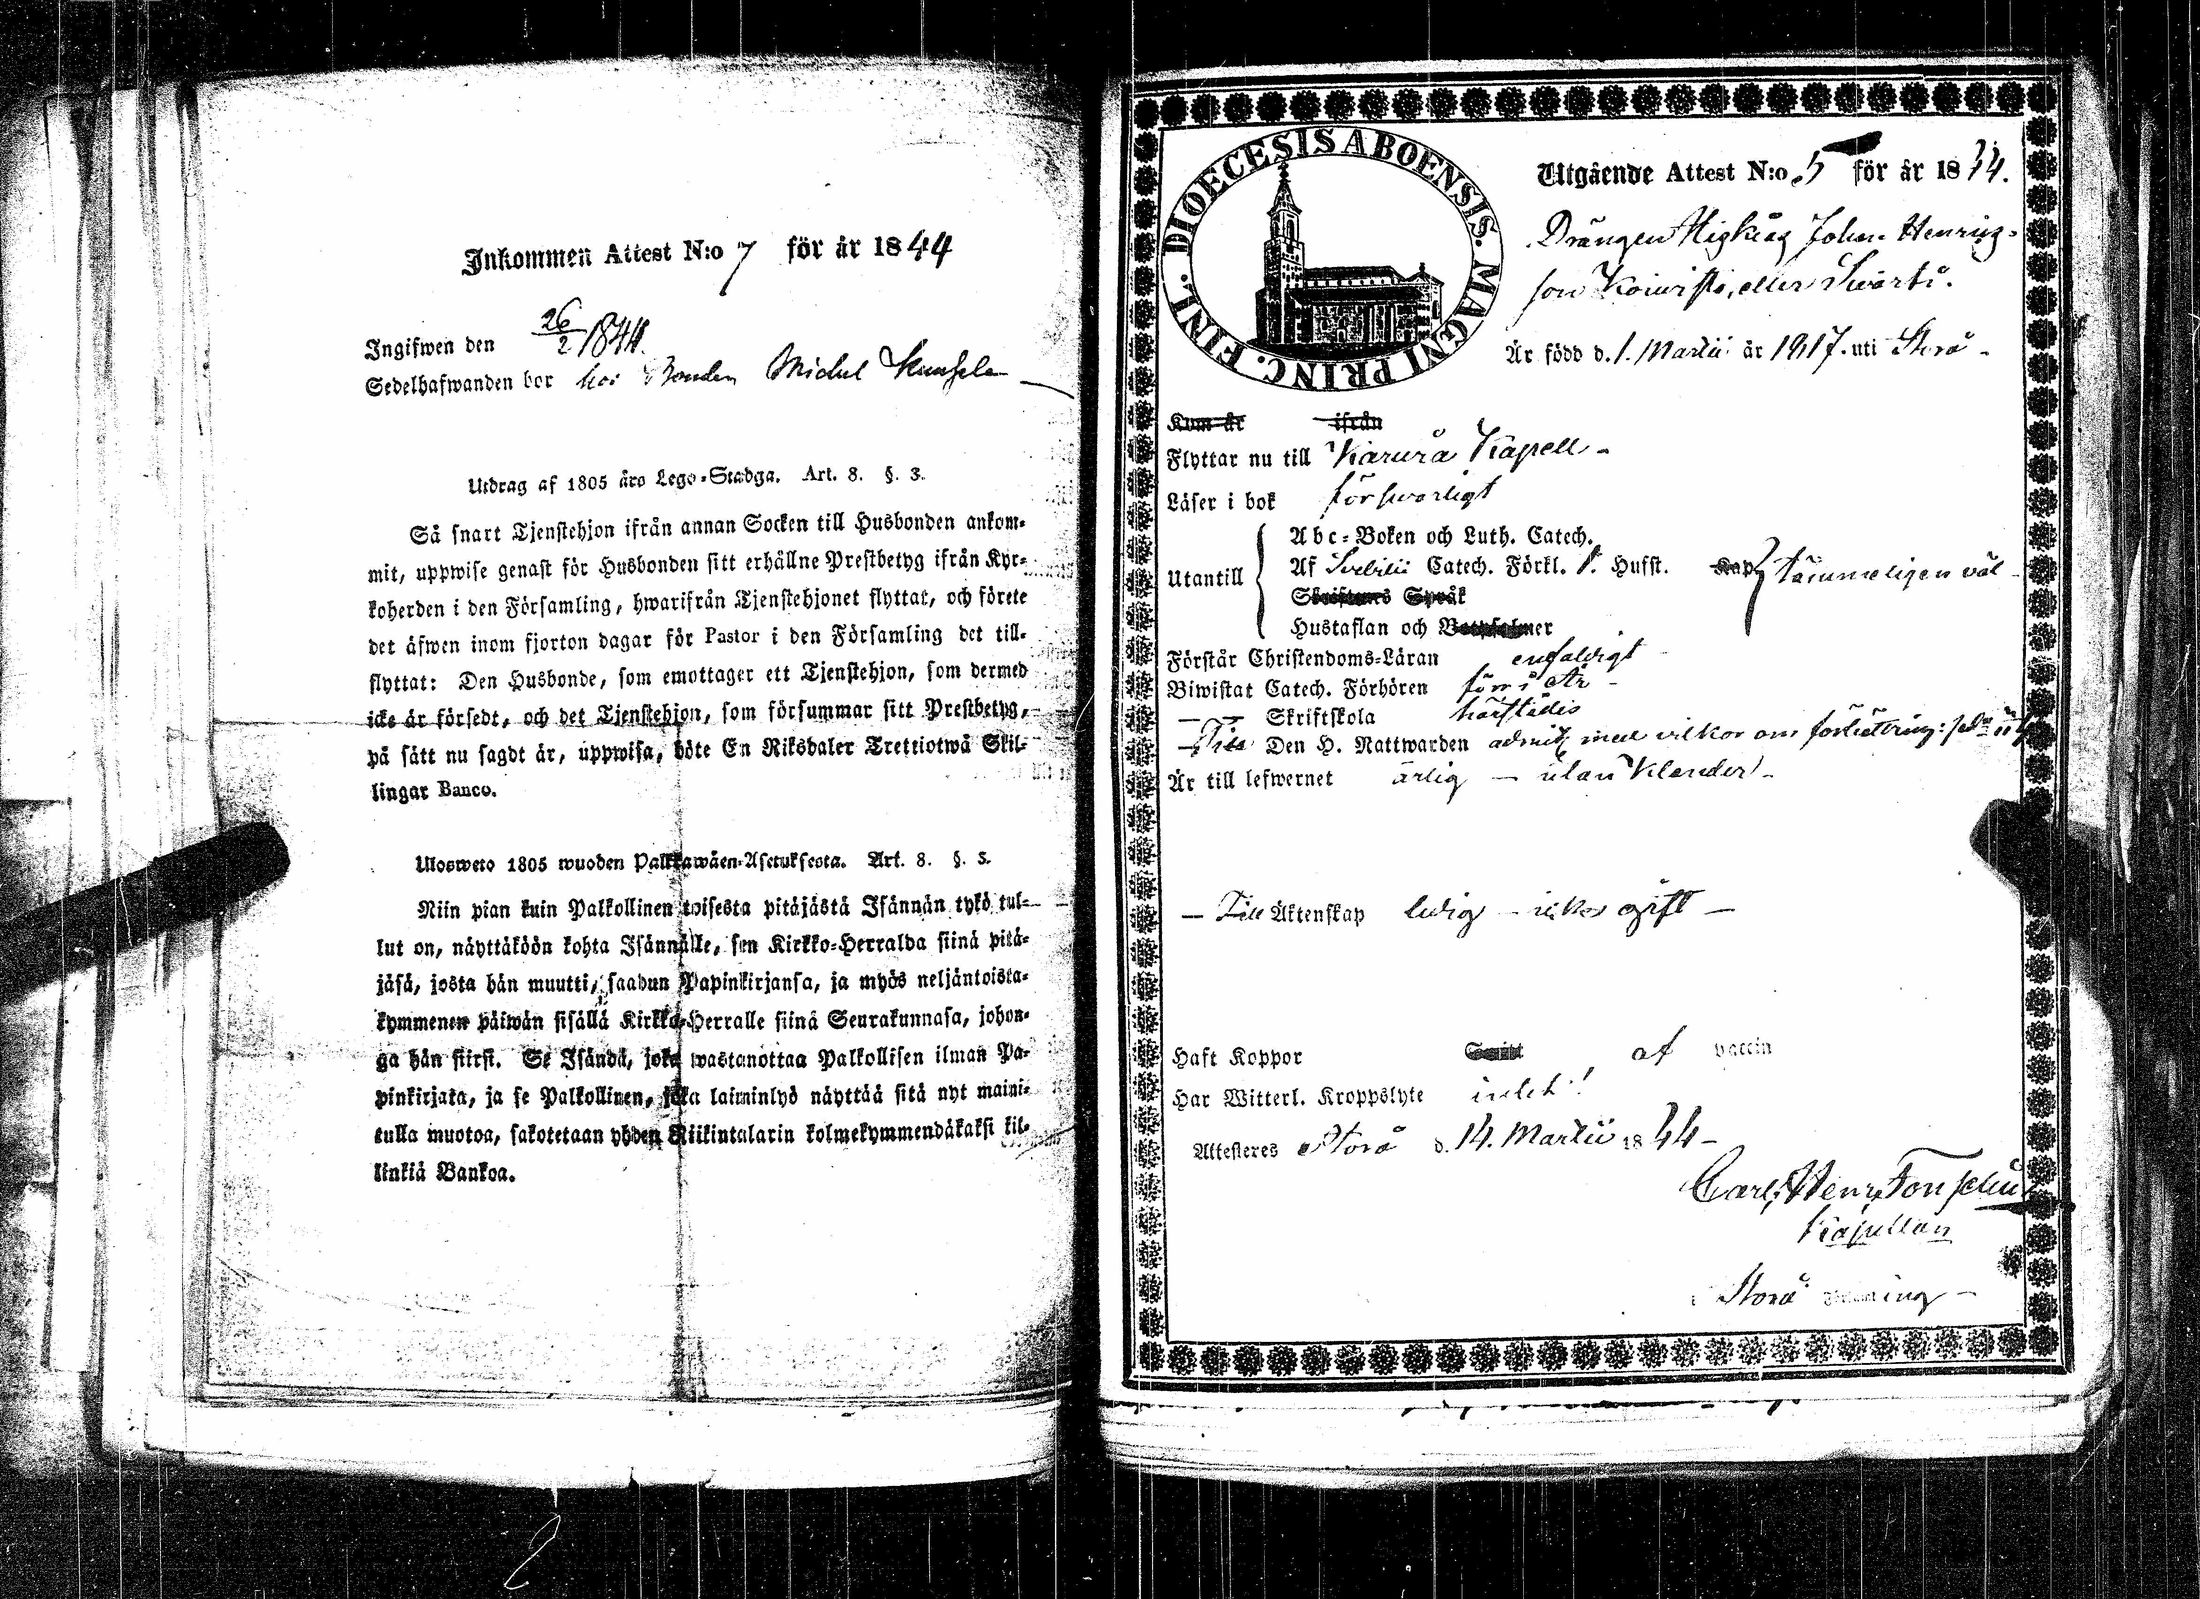 Inkommen Attest N:o 7 för år 1844
Ingifwen den 26/2 1844.
Sedelhafwanden bor hos Bonden Michel
Utdrag af 1805 års Lego-Stadga. Art. 8. §. 3.
Så snart Tjenstehjon ifrån annan Socken till Husbonden ankom-
mit, uppwise genast för Husbonden sitt erhållne Prestbetyg ifrån Kyr-
koherden i den Församling, hwarifrån Tjenstehjonet flyttat, och förete
det äfwen inom fjorton dagar för Pastor i den Församling det till-
flyttat: Den Husbonde, som emottager ett Tjenstehjon, som dermed
icke är försedt, och det Tjenstehjon, som försummar sitt Prestbetyg,
på sätt nu sagdt är, uppwisa, böte En Riksdaler Trettiotwå Skil-
lingar Banco.
Ulosweto 1805 wuoden Palkkawäen-Asetuksesta. Art. 8. §. 3.
Niin pian kuin Palkollinen toisesta pitäjästä Isännän tykö tul-
lut on, näyttäköön kohta Isännälle, sen Kirkko-Herralda siinä pitä-
jäsä, josta hän muutti, saadun Papinkirjansa, ja myös neljäntoista-
kymmenen päiwän sisällä Kirkko-Herralle siinä Seurakunnasa, johon-
ga hän siirsi. Se Isändä, joka wastanottaa Palkollisen ilman Pa-
pinkirjata, ja se Palkollinen, joka laiminlyö näyttää sitä nyt maini-
tulla muotoa, sakotetaan yhden Riikintalarin kolmekymmendäkaksi kil-
linkiä Bankoa.
DIOECESIS ABOENSIS. MAGNI PRINC. FINL.
Utgående Attest N:o 5 för år 1844.
Drängen Johan Henrics-
son Koivisto, eller Svarts.
Är född d. 1. Martii år 1817. uti Storå -
Kom år ifrån
Flyttar nu till Karura Kapell -
Läser i bok förswarligt
Abc-Boken och Luth. Catech.
Utantill Af Svebilii Catech. Förkl. Hufst. Kap tämmeligen väl -
Skriftens Språk
Hustaflan och Botpsalmer
Förstår Christendoms-Läran enfaldigt
Biwistat Catech. Förhören förri År -
— Skriftskola härstädes
— Till Den H. Nattwarden med vilkor om förbättring:
Är till lefwernet ärlig - utan klander -
— Till Äktenskap ledig - icke gift —
Haft Koppor af vaccin
Har Witterl. Kroppslyte intet!
Attesteres Storå d. 14. Martii 1844 -
Carl Henr. Fonselius
Kapellan
i Storå